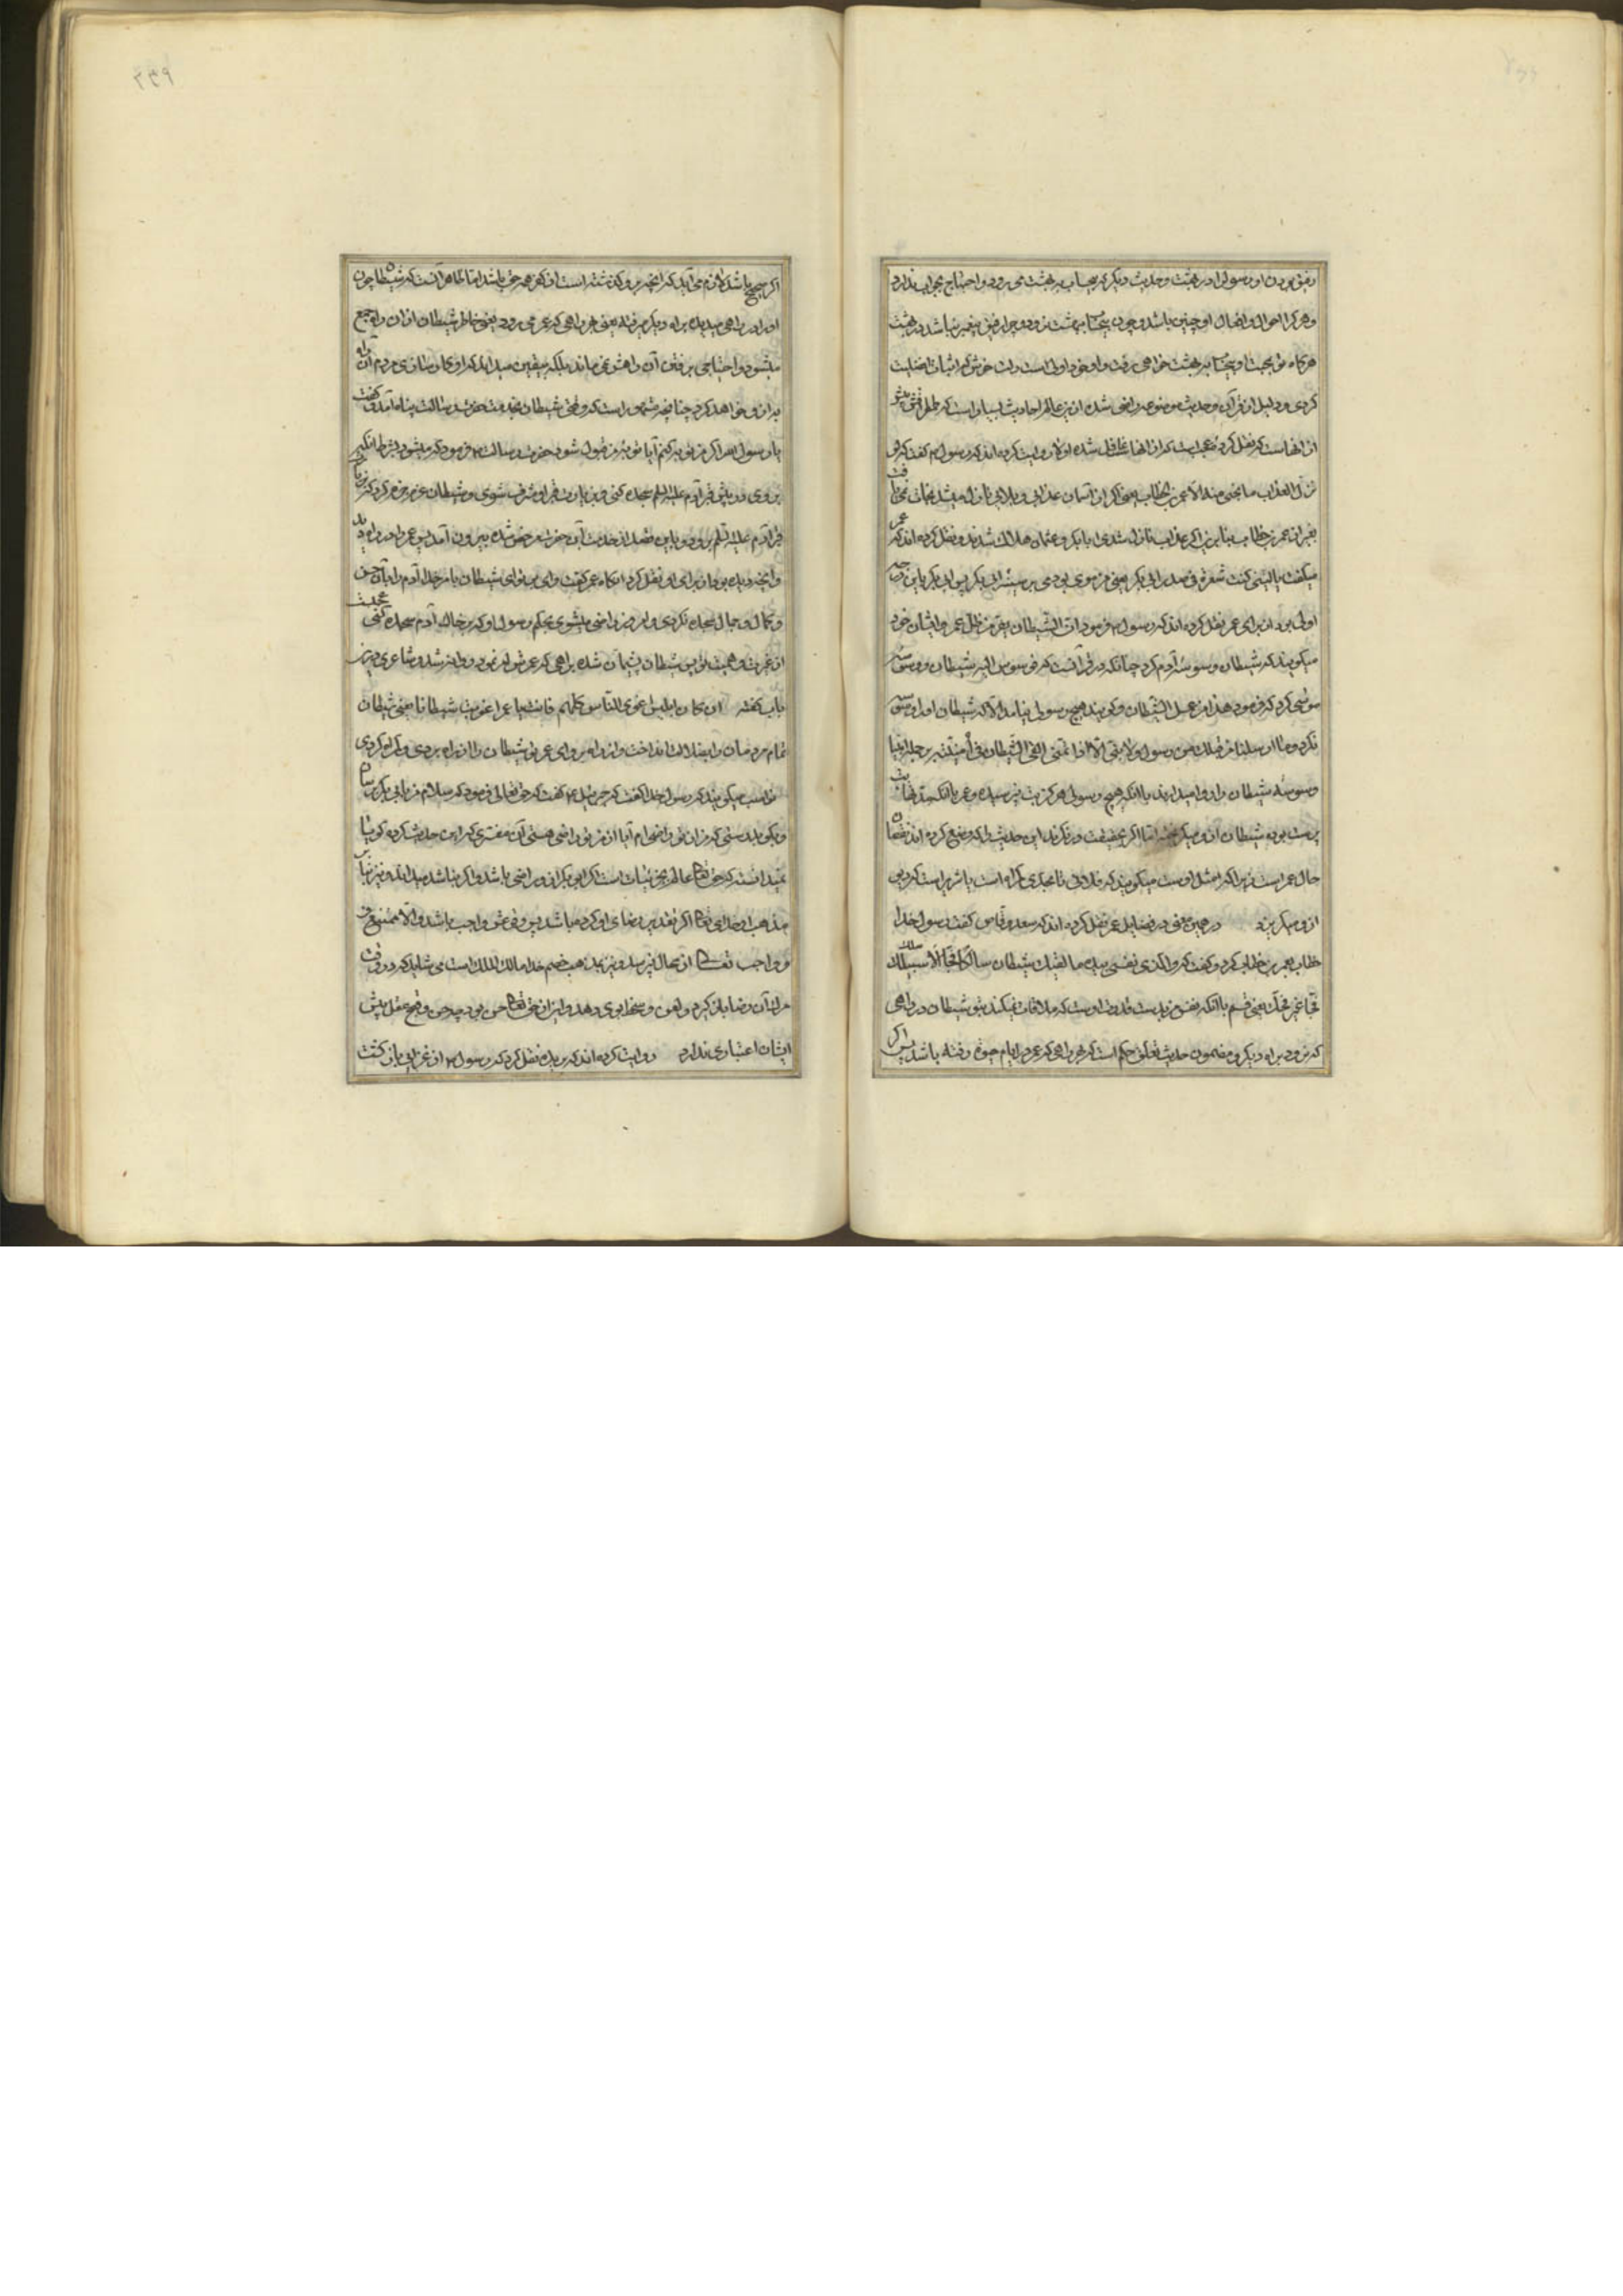 رفیق بودن او رسول را در بهشت و حدیث دیگر که بیحساب بهشت می رود و احتیاج بجواب ندارد
وهر کرا احوال و افعال او چنین باشد و چون بیحساب بهشت رود و چرا رفیق پیغمبر نباشد در بهشت
هرگاه تو بمحبت او بیحساب بهشت خواهی رفت و او خود اولی است دلت خوش که اثبات فضلیت
کردی و دلیل از قرآن و حدیث موضوعه راضی شده ازین عالم احادیث بسیار است که
از انهاست که نقل کرده عجبست که از انها غافل شده اولا روایت کرده اند که رسول گفت که لو
نزل العذاب ما نجی منه الا عمر بن الخطاب یعنی اگر از آسمان عذابی و بلایی نازل میشد نجات نمی یافت
بغیر از عمر بن خطاب بنابرین اگر عذاب نازل شدی ابابکر و عثمان هلاک شدند و نقل کرده اند که عمر
میگفت یا لیتنی کنت شعرة فی صدر ابی بکر یعنی من موی بودمی بر سینه ابی بکر پس ابی بکر باین
اولی بود از برای عمر نقل کرده اند که رسول فرمود ان الشیطان یفر من ظل عمر و ایشان خود
میگویند که شیطان وسوسه آدم کرد چنانکه در قرآنست که فوسوس الیه الشیطان و وسوسه
موسی کرد که فرمود هذا من عمل الشیطان و گویند هیچ رسولی نیامد الا که شیطان او را وسوسه
نکرد وما ارسلنا من قبلک من رسول ولا نبی الا اذا تمنی القی الشیطان فی امنیته بر جمله انبیا
وسوسه شیطان را روا میدارند با آنکه هیچ رسولی هرگز بت نپرسیده و عمر با آنکه مدتها بت
پرست بوده شیطان از و میگریخته اما اگر بحقیقت در نگرند این حدیث را که وضع کرده اند
حال عمر است زیرا که مثل اوست میگویند که فلانی تا بحدی گمراه است یا شریر است که دیو
از و میگریزد در همین معنی در فضایل عمر نقل کرده اند که سعد وقاص گفت رسول خدا
خطاب بعمر بن خطاب کرد و گفت که والذی نفسی بیده ما لقیک شیطان سالکا فجا الا سلک
فجا غیر فجک یعنی قسم بآنکه نفس من بدست قدرت اوست که ملاقات نمیکند بتو شیطان در راهی
که نرود براه دیگر و مضمون حدیث تعلق حکم است که هر راهی که عمر در ایام حیوة رفته باشد پس اگر
اگر صحیح باشد لازم می آید که انچه برو گذشته است از کفر همه حق باشد اما ظاهر آنست که شیطان چون
او را در راهی میدیده براه دیگر میرفته یعنی هر راهی که عمر می رود یعنی خاطر شیطان از ان راه جمع
میشود و احتیاجی برفتن آن راهش نمی ماند بلکه بیقین میداند که او کار سازی مردم آن راه
به ازو خواهد کرد چنانچه مشهور است که وقتی شیطان بخدمت حضرت رسالت پناه آمد و گفت
یا رسول الله اگر من توبه کنم آیا توبه من قبول شود حضرت رسالت فرمود که میشود بشرط آنکه
بروی و در پیش قبر آدم علیه السلم سجده کنی و بزیارت قبر او مشرف شوی و شیطان عزم جزم کرد که
قبر آدم علیه السلم برود و باین قصد از خدمت آن حضرت مرخص شده بیرون آمد پس عمر را در راه دید
وانچه دیده بود از برای او نقل کرد انگاه عمر گفت وای بر تو ای شیطان بامر خدا آدم را بآن حسن
و کمال و جمال سجده نکردی و امروز راضی میشوی بحکم رسول او که بر خاک آدم سجده کنی عجبست
از غیرت و همیت تو پس شیطان پشیمان شده براهی که عمرش امر نموده روانه شد و شاعری درین
باب گفته ان کان ابلیس اغوی الناس کلهم فانت یا عمر اغویت شیطانا یعنی شیطان
تمام مردمان را بضلالت انداخت و از راه برد ای عمر تو شیطان را از راه بردی و گمراه کردی
نواصب میگویند که رسول خدا گفت که جبرئیل گفت که حق تعالی فرمود که سلام من بابی بکر برسان
و بگو بدرستی که من از تو راضی ام آیا از من تو راضی هستی آن مفتری که این حدیث کرده گویا
نمیدانسته که حق تعالی عالم بجزئیاتست اگر ابی بکر ازو راضی باشد و اگر نباشد میداند و نیز بنابر
مذهب او خدای تعالی اگر تقدیر رضای او کرده باشد پس وقوعش واجب باشد والا ممتنع
و واجب تعالی از محال نپرسد و نیز بمذهب خصم خدا مالک الملک است می شاید که در وقت
مرک آن رضا باز گیرد و لعن و سخط بوی دهد و این از حق تعالی حسن بود چه حسن و قبح عقلی پیش
ایشان اعتباری ندارد روایت کرده اند که بریده نقل کرد که رسول از غزایی باز گشت